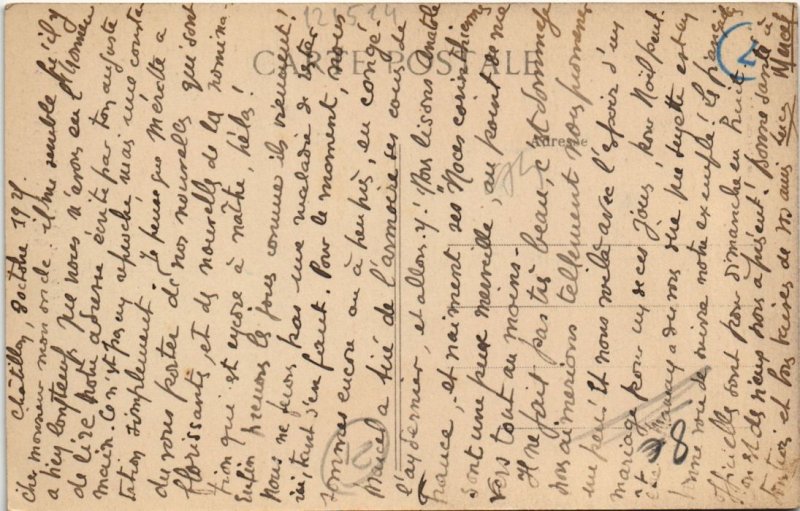 124514
CARTE POSTALE
Adresse
Châtillon, 8 octobre 1921.
cher monsieur mon oncle : il me semble qu'il y
a bien longtemps que nous n'avons eu l'honneur
de lire notre adresse écrite par ton auguste
main. Ce n'est pas un reproche mais une consta-
tation simplement. Je pense que Mérotte a
dû vous porter de nos nouvelles qui sont
florissantes, et des nouvelles de la nomina-
tion qui est encore à naître, hélas !
Enfin prenons les jours comme ils viennent !
Nous ne ferons pas une maladie de rester
ici, tant s'en faut. Pour le moment, nous
sommes encore ou à peu près, en congé
Marcel a tiré de l'armoire ses cours de
l'an dernier, et allons-y ! Nous lisons Anatole
France, et vraiment ses "Noces corinthiennes"
sont une pure merveille, au point de vue
vers tout au moins.
Il ne fait pas très beau, c'est dommage
nous aimerions tellement nous promener
un peu ! Et nous voilà avec l'espoir d'un
mariage pour un de ces jours, pour Noël peut-
être
en vue de suivre notre exemple ! les fiançailles
officielles sont pour dimanche en huit
on est des vieux nous à présent ! Bonne santé à
tontons et bons baisers de vos amis Luce Marcel